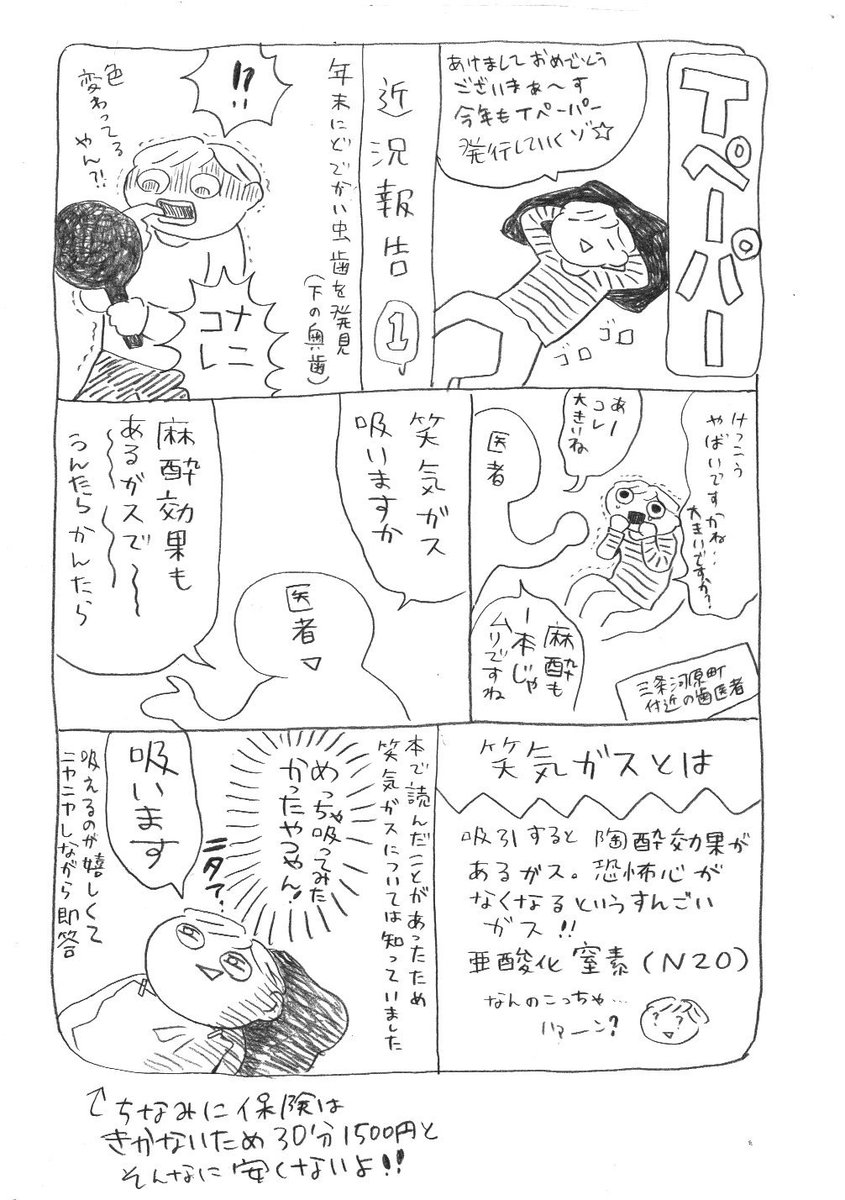 Tペーパー
あけましておめでとう
ございまぁ～す
今年もTペーパー
発行していくゾ☆
ゴロ
ゴロ
近況報告①
年末にどでかい虫歯を発見
(下の奥歯)
!?
色
変わってる
やん?!
ナニ
コレ
けっこう
やばいですかね…
大きいですか?
あー
コレ
大きいね
医者
麻酔も
一本じゃ
ムリですね
三条河原町
付近の歯医者
笑気ガス
吸いますか
医者
麻酔効果も
あるガスで～～
うんたらかんたら
笑気ガスとは
吸引すると陶酔効果が
あるガス。恐怖心が
なくなるというすんごい
ガス!!
亜酸化窒素(N2O)
なんのこっちゃ…
ハァーン?
本で読んだことがあったため
笑気ガスについては知っていました
めっちゃ吸ってみた
かったやつやん!
ニタァ?
吸います
吸えるのが嬉しくて
ニヤニヤしながら即答
←ちなみに保険は
きかないため30分1500円と
そんなに安くないよ!!